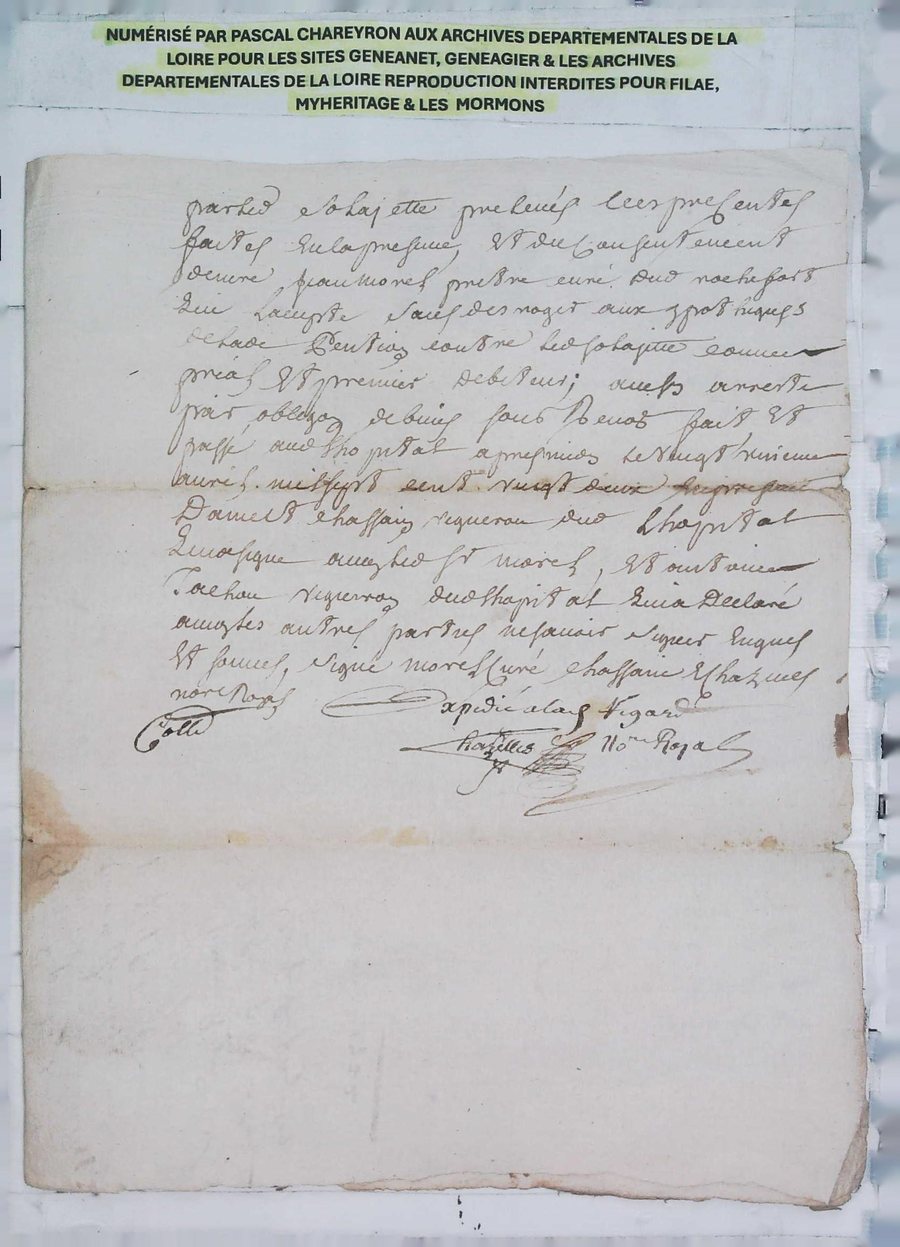 NUMÉRISÉ PAR PASCAL CHAREYRON AUX ARCHIVES DEPARTEMENTALES DE LA
LOIRE POUR LES SITES GENEANET, GENEAGIER & LES ARCHIVES
DEPARTEMENTALES DE LA LOIRE REPRODUCTION INTERDITES POUR FILAE,
MYHERITAGE & LES MORMONS
parled Solajette prelevés lees presentes
faites En la presence, Et du Consentement
de mre Jean morel prêtre curé dud rochefort
qui Laccepte sans desroger aux ypothiques
de lade Pention contre led solajette comme
et premier debiteur; arreste
par oblgon de biens sous Renon fait Et
passé aud lhopital apres midy le vingt
avril mil sept cent vingt deux En presence
Damien chassain vigneron dud Lhopital
qui a signe avec led sr morel, Et antoine
Tachon vigneron dud lhopital qui a Declaré
avec les autres parties ne savoir signer Enquis
Et sommes, signé morel Curé chassain Echazelles
nore Royal Expedié alad Vigard
Collé Chazelles No.re Royal